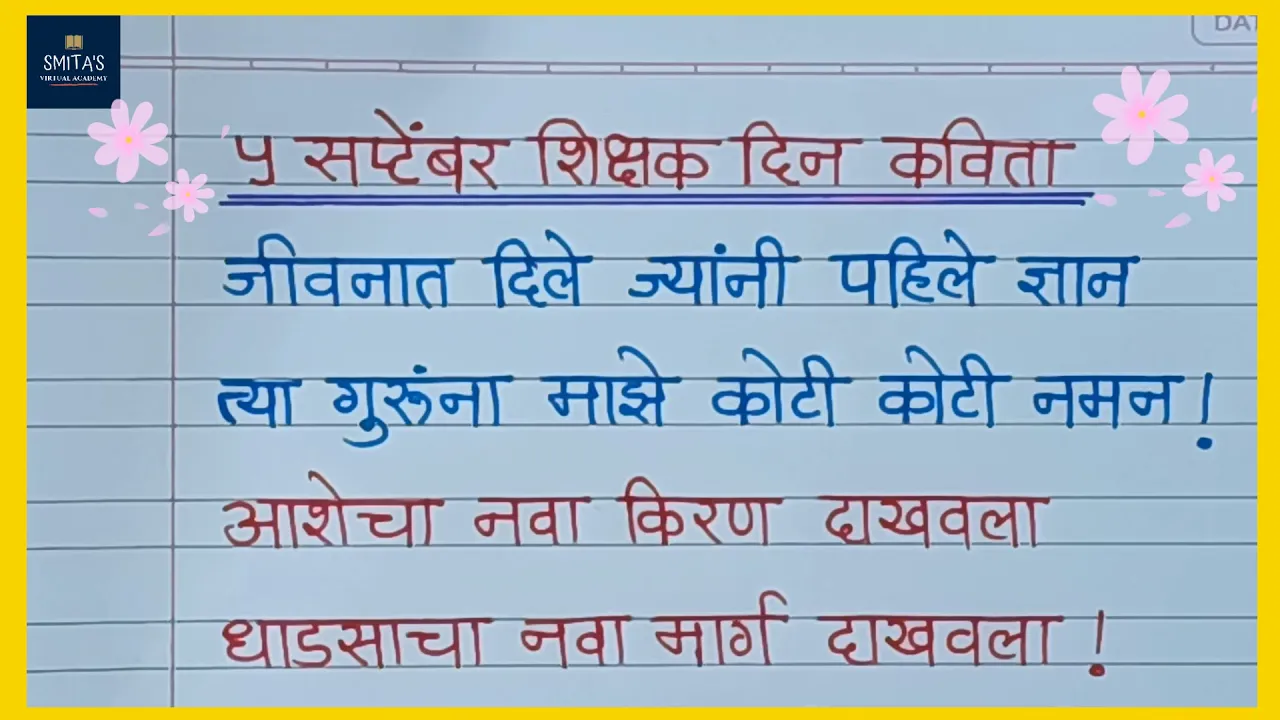 SMITA'S
VIRTUAL ACADEMY
DAT
५ सप्टेंबर शिक्षक दिन कविता
जीवनात दिले ज्यांनी पहिले ज्ञान
त्या गुरूंना माझे कोटी कोटी नमन!
आशेचा नवा किरण दाखवला
धाडसाचा नवा मार्ग दाखवला!